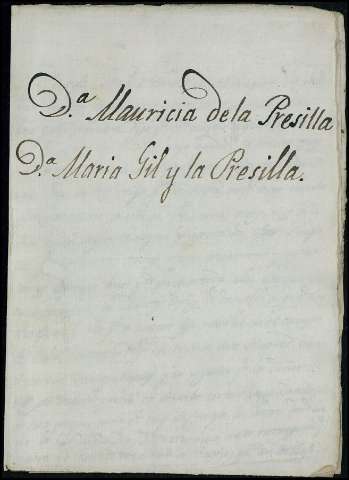 D.ª Mauricia dela Presilla
D.ª Maria Gil y la Presilla.